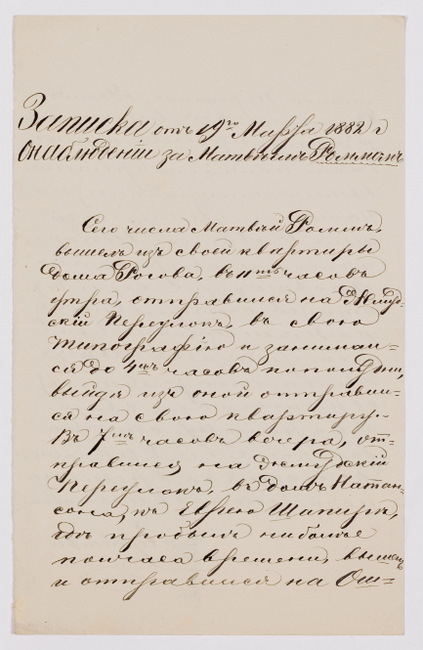 Записка отъ 19го Марта 1882 г
О наблюденіи за Матвѣемъ
Сего числа Матвѣй
вышелъ изъ своей квартиры
дома Рогова, въ 11ть часовъ
утра, отправился на
скій Переулокъ, въ свою
Типографію и занимал-
ся до 4хъ часовъ пополудни,
выйдя изъ оной отправил-
ся на свою квартиру.
Въ 7мь часовъ вечера, от-
правился, на
Переулокъ, въ домъ Натан-
сона, къ Еврею Шапиръ,
гдѣ пробылъ не болѣе
получаса времени, вышелъ
и отправился на